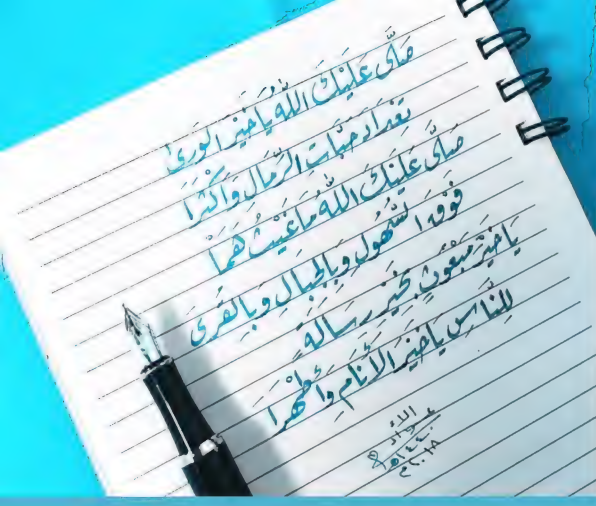 صَلَّى عَلَيْكَ اللَّهُ يَا خَيْرَ الوَرَى
تِعْدَادَ حَبَّاتِ الرِّمَالِ وَأَكْثَرَا
صَلَّى عَلَيْكَ اللَّهُ مَا غَيْثٌ هَمَا
فَوْقَ السُّهُولِ وَبِالجِبَالِ وَبِالقُرَى
يَا خَيْرَ مَبْعُوثٍ بِخَيْرِ رِسَالَةٍ
لِلنَّاسِ يَا خَيْرَ الأَنَامِ وَأَطْهَرَا
١٤٤٠هـ
٢٠١٨م